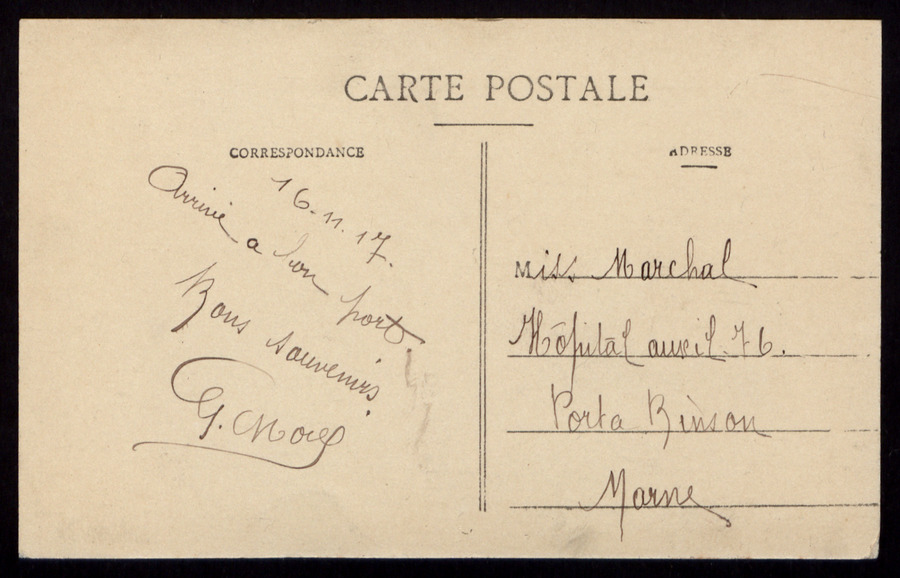 CARTE POSTALE
CORRESPONDANCE
16.11.17.
Arrivé a bon port
Bons souvenirs.
G. Morel
ADRESSE
Miss Marchal
Hôpital auxil. 76.
Port a Binson
Marne